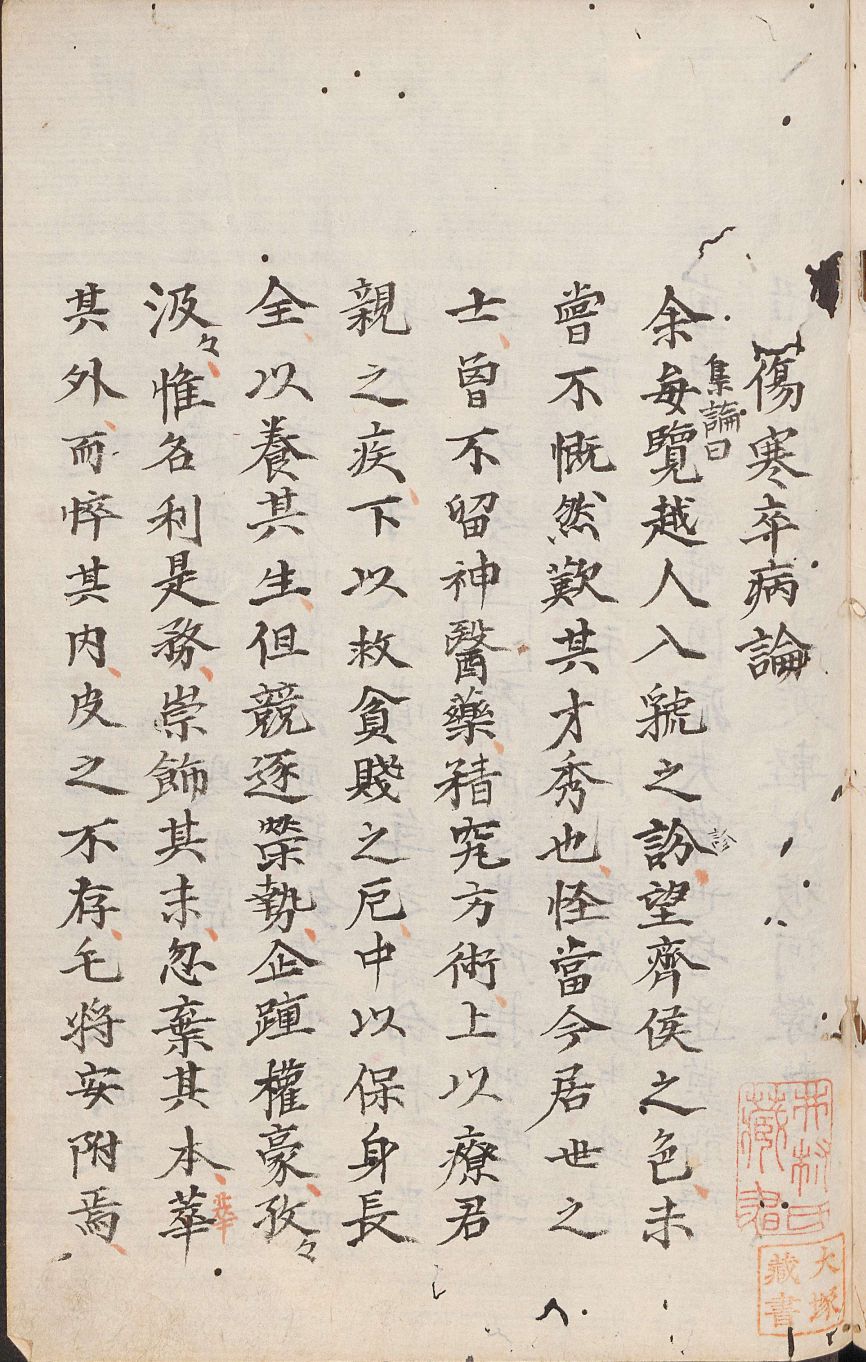 傷寒卒病論
集論曰
余每覽越人入虢之訜望齊侯之色未
診
嘗不慨然歎其才秀也怪當今居世之
士曾不留神醫藥精究方術上以療君
親之疾下以救貧賤之厄中以保身長
全以養其生但競逐榮勢企踵權豪孜々
汲々惟名利是務崇飾其末忽棄其本華
華
其外而悴其内皮之不存毛將安附焉
藏書
大塚
藏書